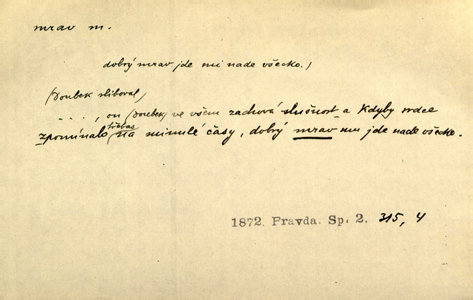 mrav m.
dobrý mrav jde mi nade všecko.)
(Doubek sliboval)
...., on (Doubek) ve všem zachová slušnost a kdyby srdce
třebas
zpomínalo na minulé časy, dobrý mrav mu jde nade všecko.
1872. Pravda. Sp. 2. 315, 4